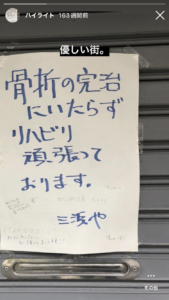 ハイライト 163週間前
優しい街。
骨折の完治
にいたらず
リハビリ
頑張って
おります。
三浜や
その他